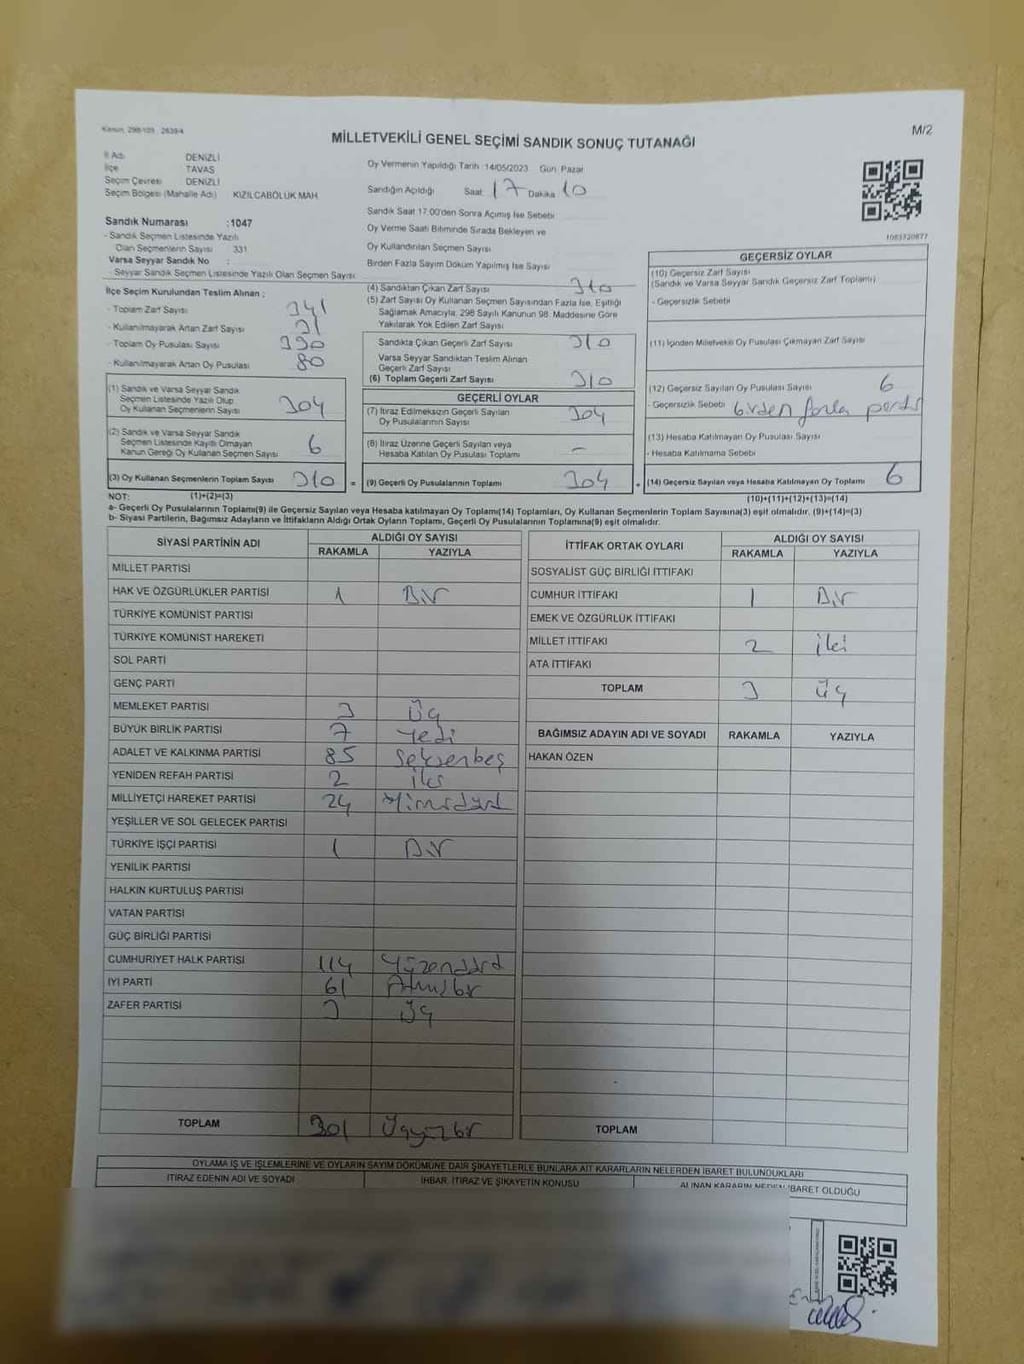 Kanun, 298-109 2839-4
M/2
MİLLETVEKİLİ GENEL SEÇİMİ SANDIK SONUÇ TUTANAĞI
İl Adı DENİZLİ
İlçe TAVAS
Seçim Çevresi DENİZLİ
Seçim Bölgesi (Mahalle Adı) KIZILCABÖLÜK MAH
Oy Vermenin Yapıldığı Tarih 14/05/2023 Gün Pazar
Sandığın Açıldığı Saat 17 Dakika 10
Sandık Saat 17.00'den Sonra Açımış İse Sebebi
Oy Verme Saati Bitiminde Sırada Bekleyen ve
Oy Kullandırılan Seçmen Sayısı
Birden Fazla Sayım Döküm Yapılmış İse Sayısı
1083720877
Sandık Numarası :1047
- Sandık Seçmen Listesinde Yazılı
Olan Seçmenlerin Sayısı 331
Varsa Seyyar Sandık No :
- Seyyar Sandık Seçmen Listesinde Yazılı Olan Seçmen Sayısı
İlçe Seçim Kurulundan Teslim Alınan ;
- Toplam Zarf Sayısı 341
- Kullanılmayarak Artan Zarf Sayısı 31
- Toplam Oy Pusulası Sayısı 390
- Kullanılmayarak Artan Oy Pusulası 80
(1) Sandık ve Varsa Seyyar Sandık
Seçmen Listesinde Yazılı Olup
Oy Kullanan Seçmenlerin Sayısı 304
(2) Sandık ve Varsa Seyyar Sandık
Seçmen Listesinde Kayıtlı Olmayan
Kanun Gereği Oy Kullanan Seçmen Sayısı 6
(3) Oy Kullanan Seçmenlerin Toplam Sayısı 310 =
(4) Sandıktan Çıkan Zarf Sayısı 310
(5) Zarf Sayısı Oy Kullanan Seçmen Sayısından Fazla İse, Eşitliği
Sağlamak Amacıyla, 298 Sayılı Kanunun 98. Maddesine Göre
Yakılarak Yok Edilen Zarf Sayısı
Sandıkta Çıkan Geçerli Zarf Sayısı 310
Varsa Seyyar Sandıktan Teslim Alınan
Geçerli Zarf Sayısı
(6) Toplam Geçerli Zarf Sayısı 310
GEÇERLİ OYLAR
(7) İtiraz Edilmeksizin Geçerli Sayılan
Oy Pusulalarının Sayısı 304
(8) İtiraz Üzerine Geçerli Sayılan veya
Hesaba Katılan Oy Pusulası Toplamı -
(9) Geçerli Oy Pusulalarının Toplamı 304 +
GEÇERSİZ OYLAR
(10) Geçersiz Zarf Sayısı
(Sandık ve Varsa Seyyar Sandık Geçersiz Zarf Toplamı)
- Geçersizlik Sebebi
(11) İçinden Milletvekili Oy Pusulası Çıkmayan Zarf Sayısı
(12) Geçersiz Sayılan Oy Pusulası Sayısı 6
- Geçersizlik Sebebi birden fazla
(13) Hesaba Katılmayan Oy Pusulası Sayısı
- Hesaba Katılmama Sebebi
(14) Geçersiz Sayılan veya Hesaba Katılmayan Oy Toplamı 6
NOT: (1)+(2)=(3) (10)+(11)+(12)+(13)=(14)
a- Geçerli Oy Pusulalarının Toplamı(9) ile Geçersiz Sayılan veya Hesaba katılmayan Oy Toplamı(14) Toplamları, Oy Kullanan Seçmenlerin Toplam Sayısına(3) eşit olmalıdır. (9)+(14)=(3)
b- Siyasi Partilerin, Bağımsız Adayların ve İttifakların Aldığı Ortak Oyların Toplamı, Geçerli Oy Pusulalarının Toplamına(9) eşit olmalıdır.
SİYASİ PARTİNİN ADI ALDIĞI OY SAYISI
RAKAMLA YAZIYLA
MİLLET PARTİSİ
HAK VE ÖZGÜRLÜKLER PARTİSİ 1 Bir
TÜRKİYE KOMÜNİST PARTİSİ
TÜRKİYE KOMÜNİST HAREKETİ
SOL PARTİ
GENÇ PARTİ
MEMLEKET PARTİSİ 3 Üç
BÜYÜK BİRLİK PARTİSİ 7 Yedi
ADALET VE KALKINMA PARTİSİ 85 Seksenbeş
YENİDEN REFAH PARTİSİ 2 İki
MİLLİYETÇİ HAREKET PARTİSİ 24 Yirmidört
YEŞİLLER VE SOL GELECEK PARTİSİ
TÜRKİYE İŞÇİ PARTİSİ 1 Bir
YENİLİK PARTİSİ
HALKIN KURTULUŞ PARTİSİ
VATAN PARTİSİ
GÜÇ BİRLİĞİ PARTİSİ
CUMHURİYET HALK PARTİSİ 114 Yüzondört
İYİ PARTİ 61 Altmışbir
ZAFER PARTİSİ 3 Üç
TOPLAM 301 Üçyüzbir
İTTİFAK ORTAK OYLARI ALDIĞI OY SAYISI
RAKAMLA YAZIYLA
SOSYALİST GÜÇ BİRLİĞİ İTTİFAKI
CUMHUR İTTİFAKI 1 Bir
EMEK VE ÖZGÜRLÜK İTTİFAKI
MİLLET İTTİFAKI 2 İki
ATA İTTİFAKI
TOPLAM 3 Üç
BAĞIMSIZ ADAYIN ADI VE SOYADI RAKAMLA YAZIYLA
HAKAN ÖZEN
TOPLAM
OYLAMA İŞ VE İŞLEMLERİNE VE OYLARIN SAYIM DÖKÜMÜNE DAİR ŞİKAYETLERLE BUNLARA AİT KARARLARIN NELERDEN İBARET BULUNDUKLARI
İTİRAZ EDENİN ADI VE SOYADI İHBAR, İTİRAZ VE ŞİKAYETİN KONUSU ALINAN KARARIN NEDEN İBARET OLDUĞU